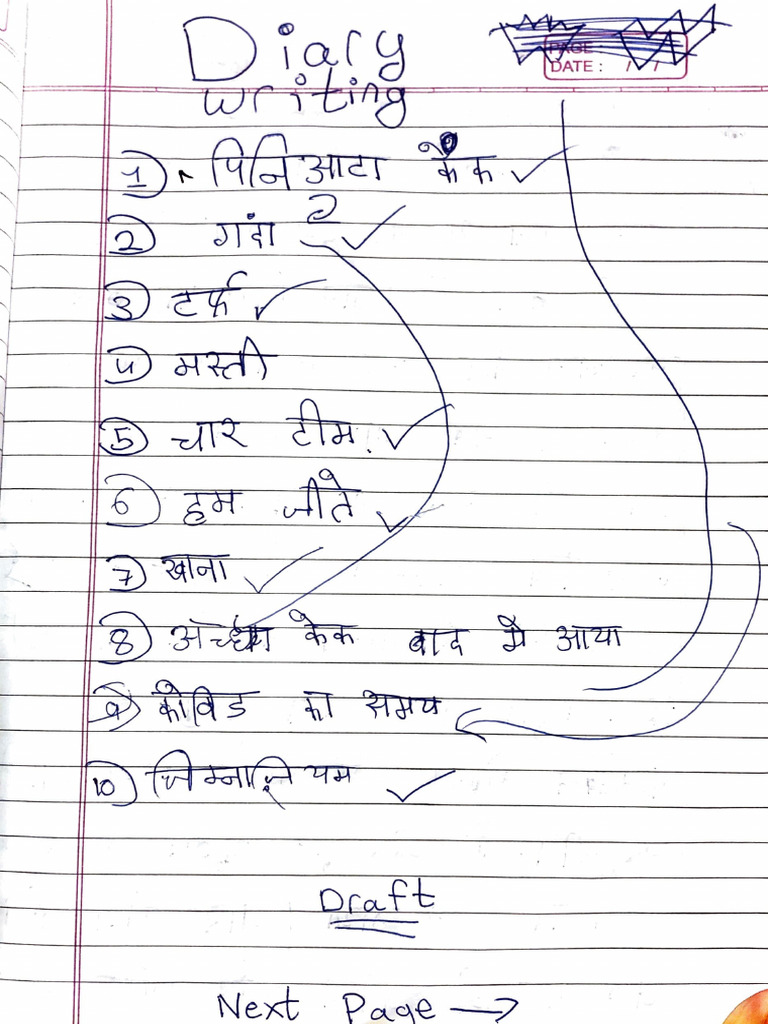 Diary
writing
PAGE
DATE : / /
1 पिनिआटा केक ✓
2 गंदा ✓
3 टर्फ ✓
4 मस्ती
5 चार टीम. ✓
6 हम जीते ✓
7 खाना ✓
8 केक बाद मे आया
9 कोविड का समय
10 जिम्नाज़ियम ✓
Draft
Next Page →